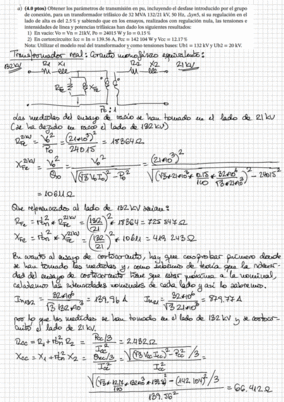 a) (4.0 ptos) Obtener los parámetros de transmisión en pu, incluyendo el desfase introducido por el grupo
de conexión, para un transformador trifásico de 32 MVA 132/21 kV, 50 Hz, si la regulación en el
lado de alta es del 2.5 % y sabiendo que en los ensayos, realizados con regulación nula, las tensiones e
intensidades de línea y potencias trifásicas han dado los siguientes resultados:
1) En vacío: Vo = Vn = 21kV, Po = 24015 W y Io = 0.15 %
2) En cortocircuito: Icc = In = 139.96 A, Pcc = 142 104 W y Vcc = 12.17 %
Nota: Utilizar el modelo real del transformador y como tensiones bases: Ub1 = 132 kV y Ub2 = 20 kV.
Transformador real: Circuito monofásico equivalente:
132kV R1 X1 R2 X2 21kV
RFe XFe
Las medidas del ensayo de vacío se han tomado en el lado de 21 kV
(Se ha dejado en vacío el lado de 132 kV)
RFe 21kV = Vo²/Po = (21×10³)²/24015 = 18364 Ω
XFe 21kV = Vo²/Qo = Vo²/√((√3 Vo Io)² - Po²) = (21×10³)²/√((√3×21×10³× 0.15/100 × 32×10⁶/√3×21×10³)² - 24015²)
= 10611 Ω
Que referenciados al lado de 132 kV serían:
RFe = rtn² × RFe 21kV = (132/21)² × 18364 =
XFe = rtn² × XFe 21kV = (132/21)² × 10611 = 419 243 Ω
En cuanto al ensayo de cortocircuito, hay que comprobar primero donde
se han tomado las medidas y, como sabemos de teoría que la intensi-
dad del ensayo de cortocircuito tiene que estar próxima a la nominal,
calculamos las intensidades nominales de cada lado y así lo sabremos.
Inom1 = 32×10⁶/√3 132×10³ = 139.96 A Inom2 = 32×10⁶/√3 21×10³ = 879.77 A
por lo que las medidas se han tomado en el lado de 132 kV y se cortocir-
cuitó el lado de 21 kV.
Rcc = R1 + rtn² R2 = (Pcc/3)/Icc² = 2.418 Ω
Xcc = X1 + rtn² X2 = (Qcc/3)/Icc² = √((√3 Vcc Icc)² - Pcc²)/3 / Icc² =
= 66.412 Ω